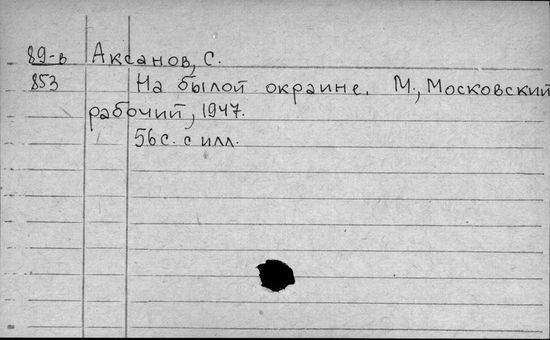 89-в Аксанов, С.
853 На былой окраине. М., Московский
рабочий, 1947.
56с. с илл.